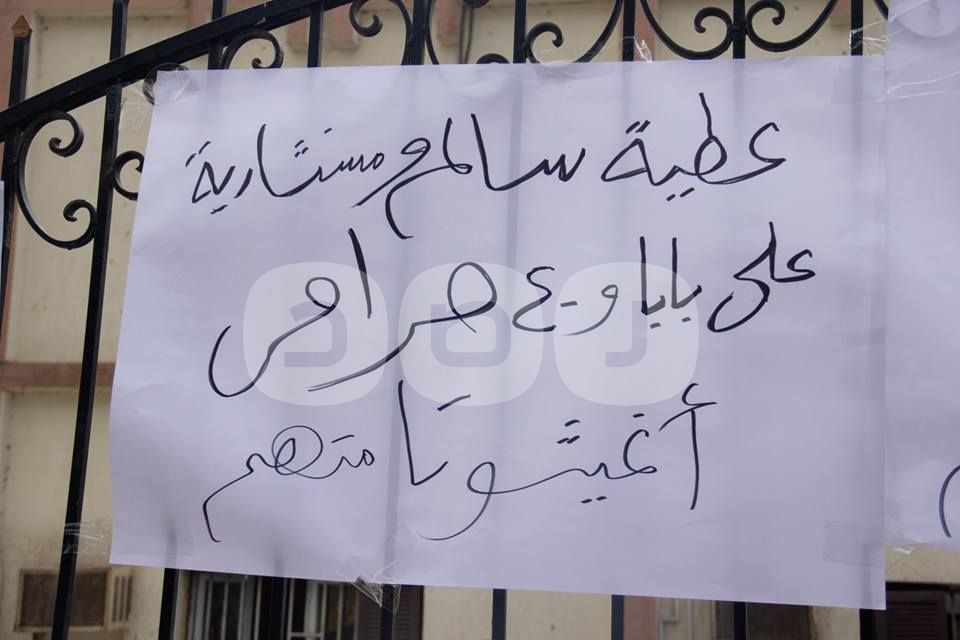 عطية سالم ومستشارية
على بابا و ٤٠ حرامى
أغيثونا منهم
رصد